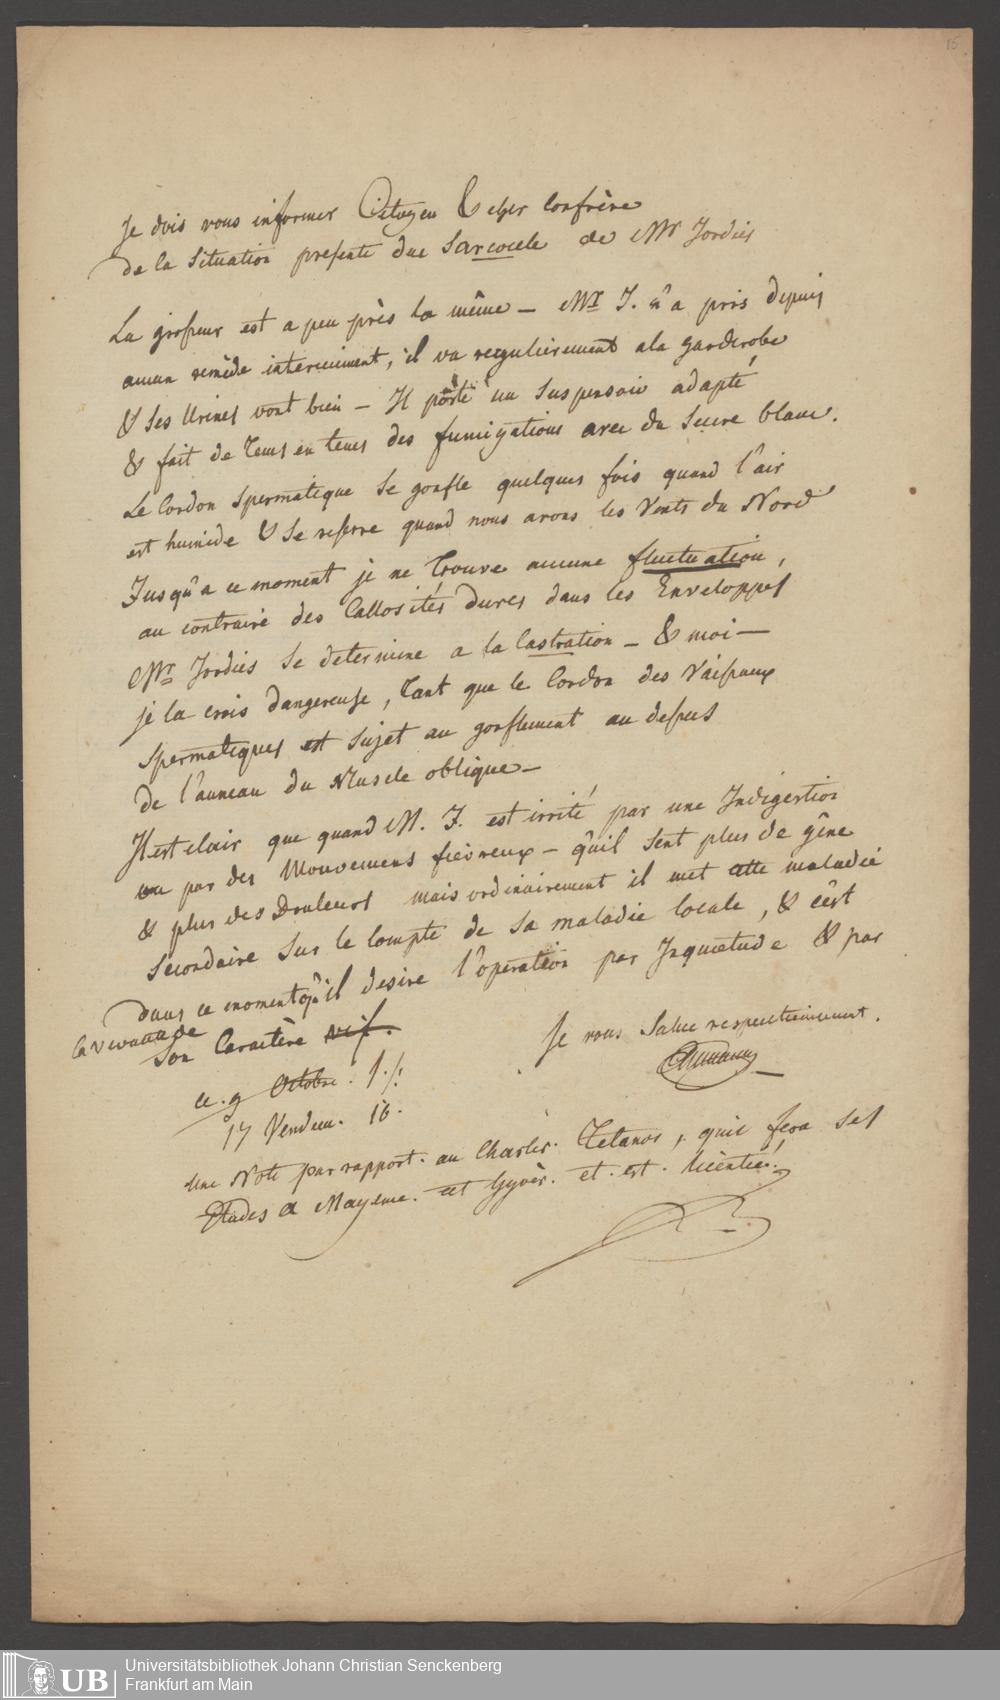 15
Je dois vous informer Citoyen & cher Confrère
de la Situation presente du Sarcocele de Mr Jordies
La grosseur est a peu près la même – Mr J. n'a pris depuis
aucun remède interieuiment, il va regulierement a la garderobe
& ses Urines vont bien – Il pôrte un Suspensoir adapté
& fait de tems en tems des fumigations avec du Sucre blanc.
Le Cordon Spermatique se gonfle quelques fois quand l'air
est humide & se resserre quand nous avons les Vents du Nord
Jusqu'a ce moment je ne trouve aucune fluctuation,
au contraire des Callosités dures dans les Enveloppes
Mr Jordies se determine a la Castration – & moi –
je la crois dangereuse, tant que le Cordon des Vaisseaux
Spermatiques est sujet au gonflement au dessus
de l'anneau du Muscle oblique –
Il est clair que quand M. J. est irrité par une Indigestion
ou par des Mouvemens fiévreux – qu'il sent plus de gêne
& plus des Douleurs mais ordinairement il met cette maladie
Secondaire sur le Compte de sa maladie locale, & c'est
dans ce moment qu'il desire l'operation par Inquietude & par
la vivacité de
son Caractère vif.
Je vous Salue respectueusement.
ce 9 Octobre
17 Vendem.
Une Note par rapport au Tetanos, qui fera ses
Etudes a Mayence et est licentié.
Universitätsbibliothek Johann Christian Senckenberg
Frankfurt am Main
UB